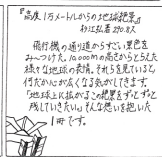 『高度1万メートルからの地球絶景』
杉江弘著 290.8ス
飛行機の通り道からすごい景色を
み〜つけた。10,000mの高さからとらえた
様々な地球の表情。それらを見ていると、
何だか心が広くなる気がしてきます。
「地球上に拡がるこの絶景をずっとずっと
残していきたい」そんな想いを抱いた
1冊です。